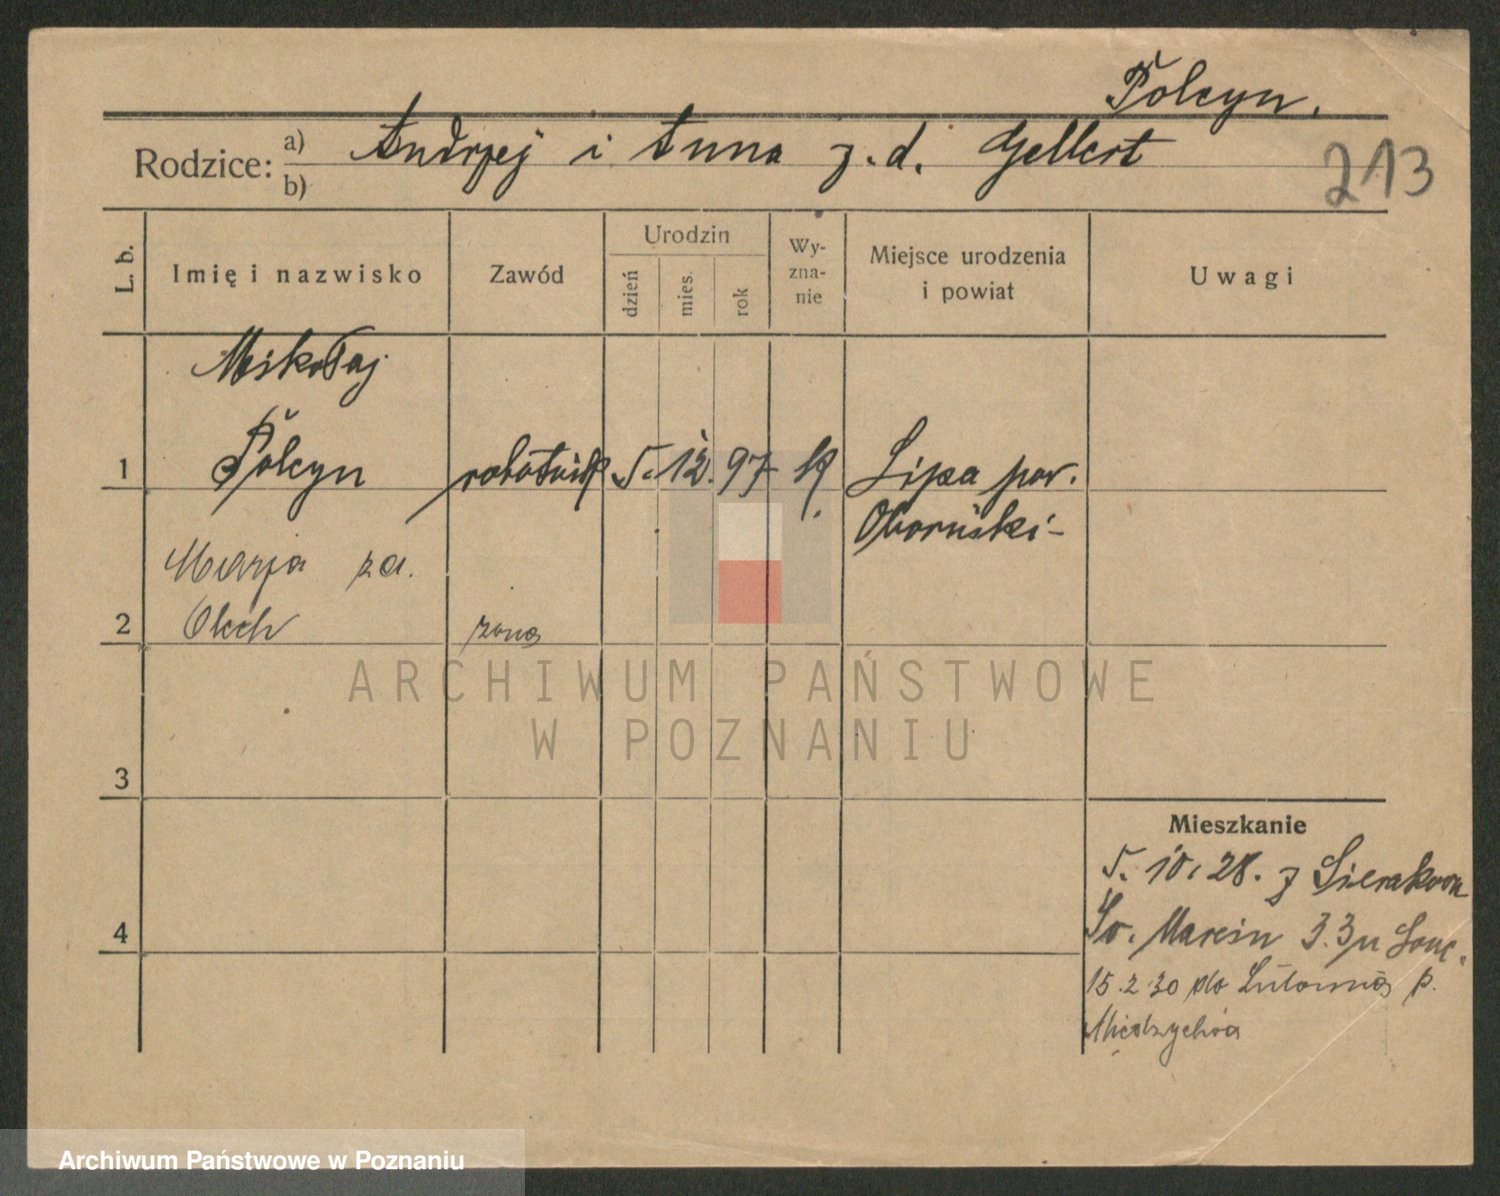 Polcyn.
Rodzice: a) Andrzej i Anna z. d. Gellert
b)
213
L. b.
Imię i nazwisko
Zawód
Urodzin
dzień
mies.
rok
Wy-
zna-
nie
Miejsce urodzenia
i powiat
Uwagi
Mikołaj
1 Polcyn robotnik 5. 12. 97 k. Lipa pow.
Obornicki
Marja za.
2 Olech żona
ARCHIWUM PAŃSTWOWE
W POZNANIU
3
Mieszkanie
5. 10. 28. z Sierakow
4
Św. Marcin 33 u
15. 2 30 do Lutomia p.
Międzychód
Archiwum Państwowe w Poznaniu